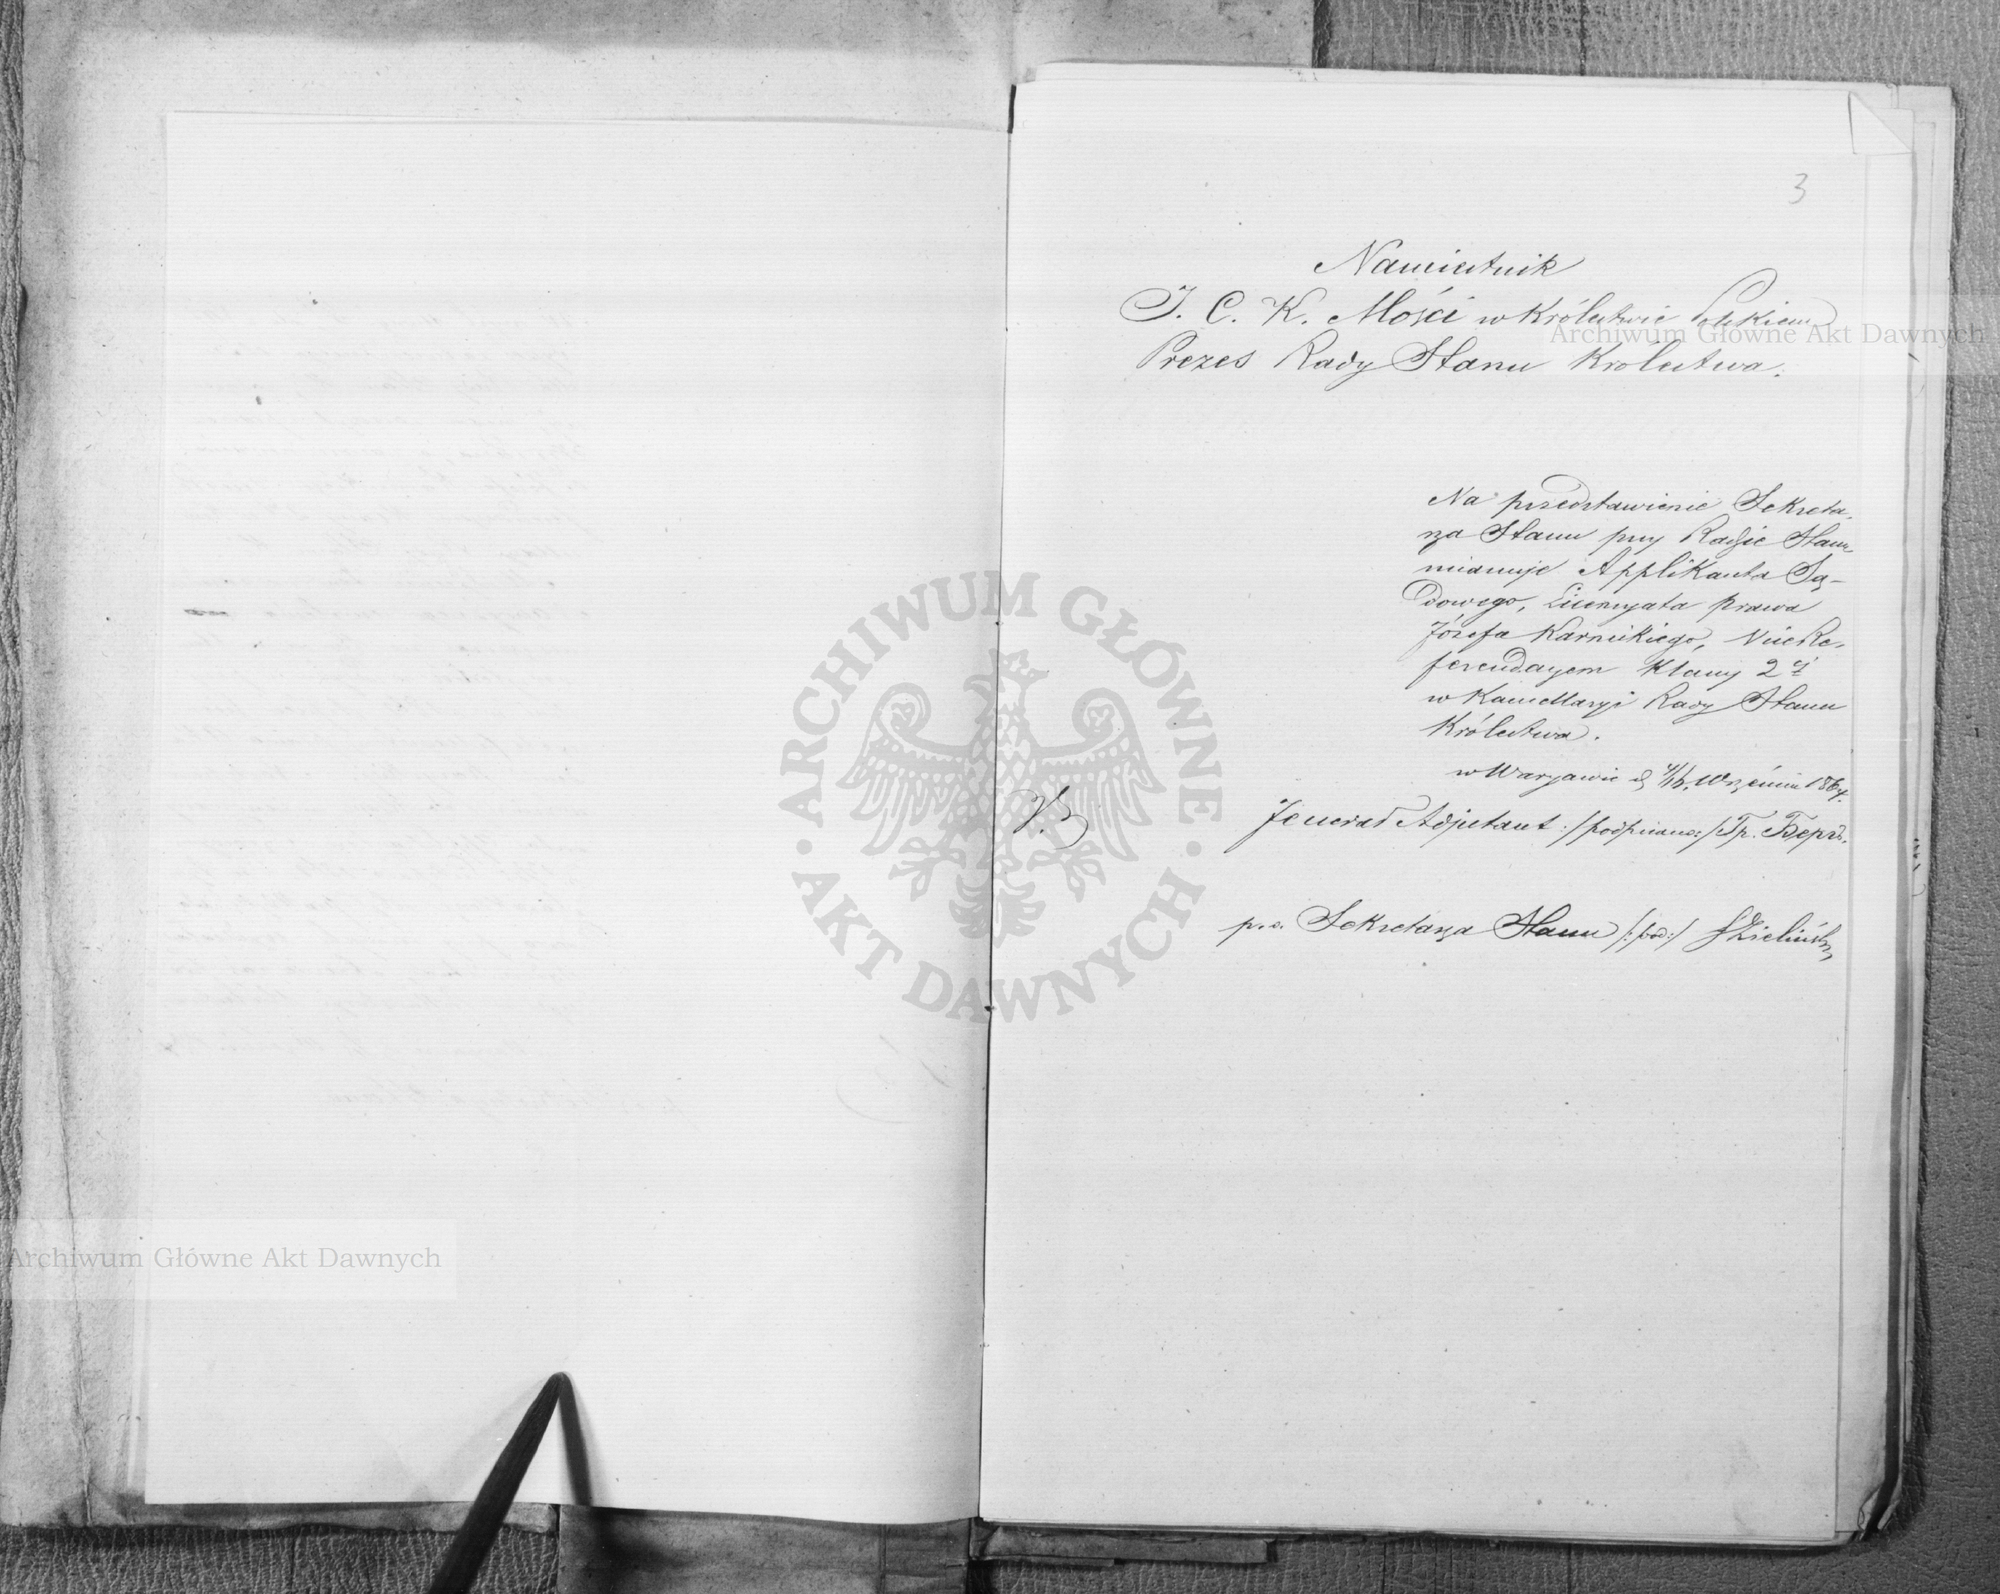 3
Namiestnik
J. C. K. Mości w Królestwie Polskiem
Prezes Rady Stanu Królestwa.
Na przedstawienie Sekreta-
rza Stanu przy Radzie Stanu
mianuje Applikanta Są-
dowego, Licencyata prawa
Józefa Karnickiego, Vice Re-
ferendarzem Klassy 2éj
w Kancellaryi Rady Stanu
Królestwa.
w Warszawie d. Września 1864.
Jenerał Adjutant :/podpisano:/ Гр. Бергъ.
V.B
p.o. Sekretarza Stanu /:pod:/ Zieliński
Archiwum Główne Akt Dawnych
Archiwum Główne Akt Dawnych
ARCHIWUM GŁÓWNE
AKT DAWNYCH